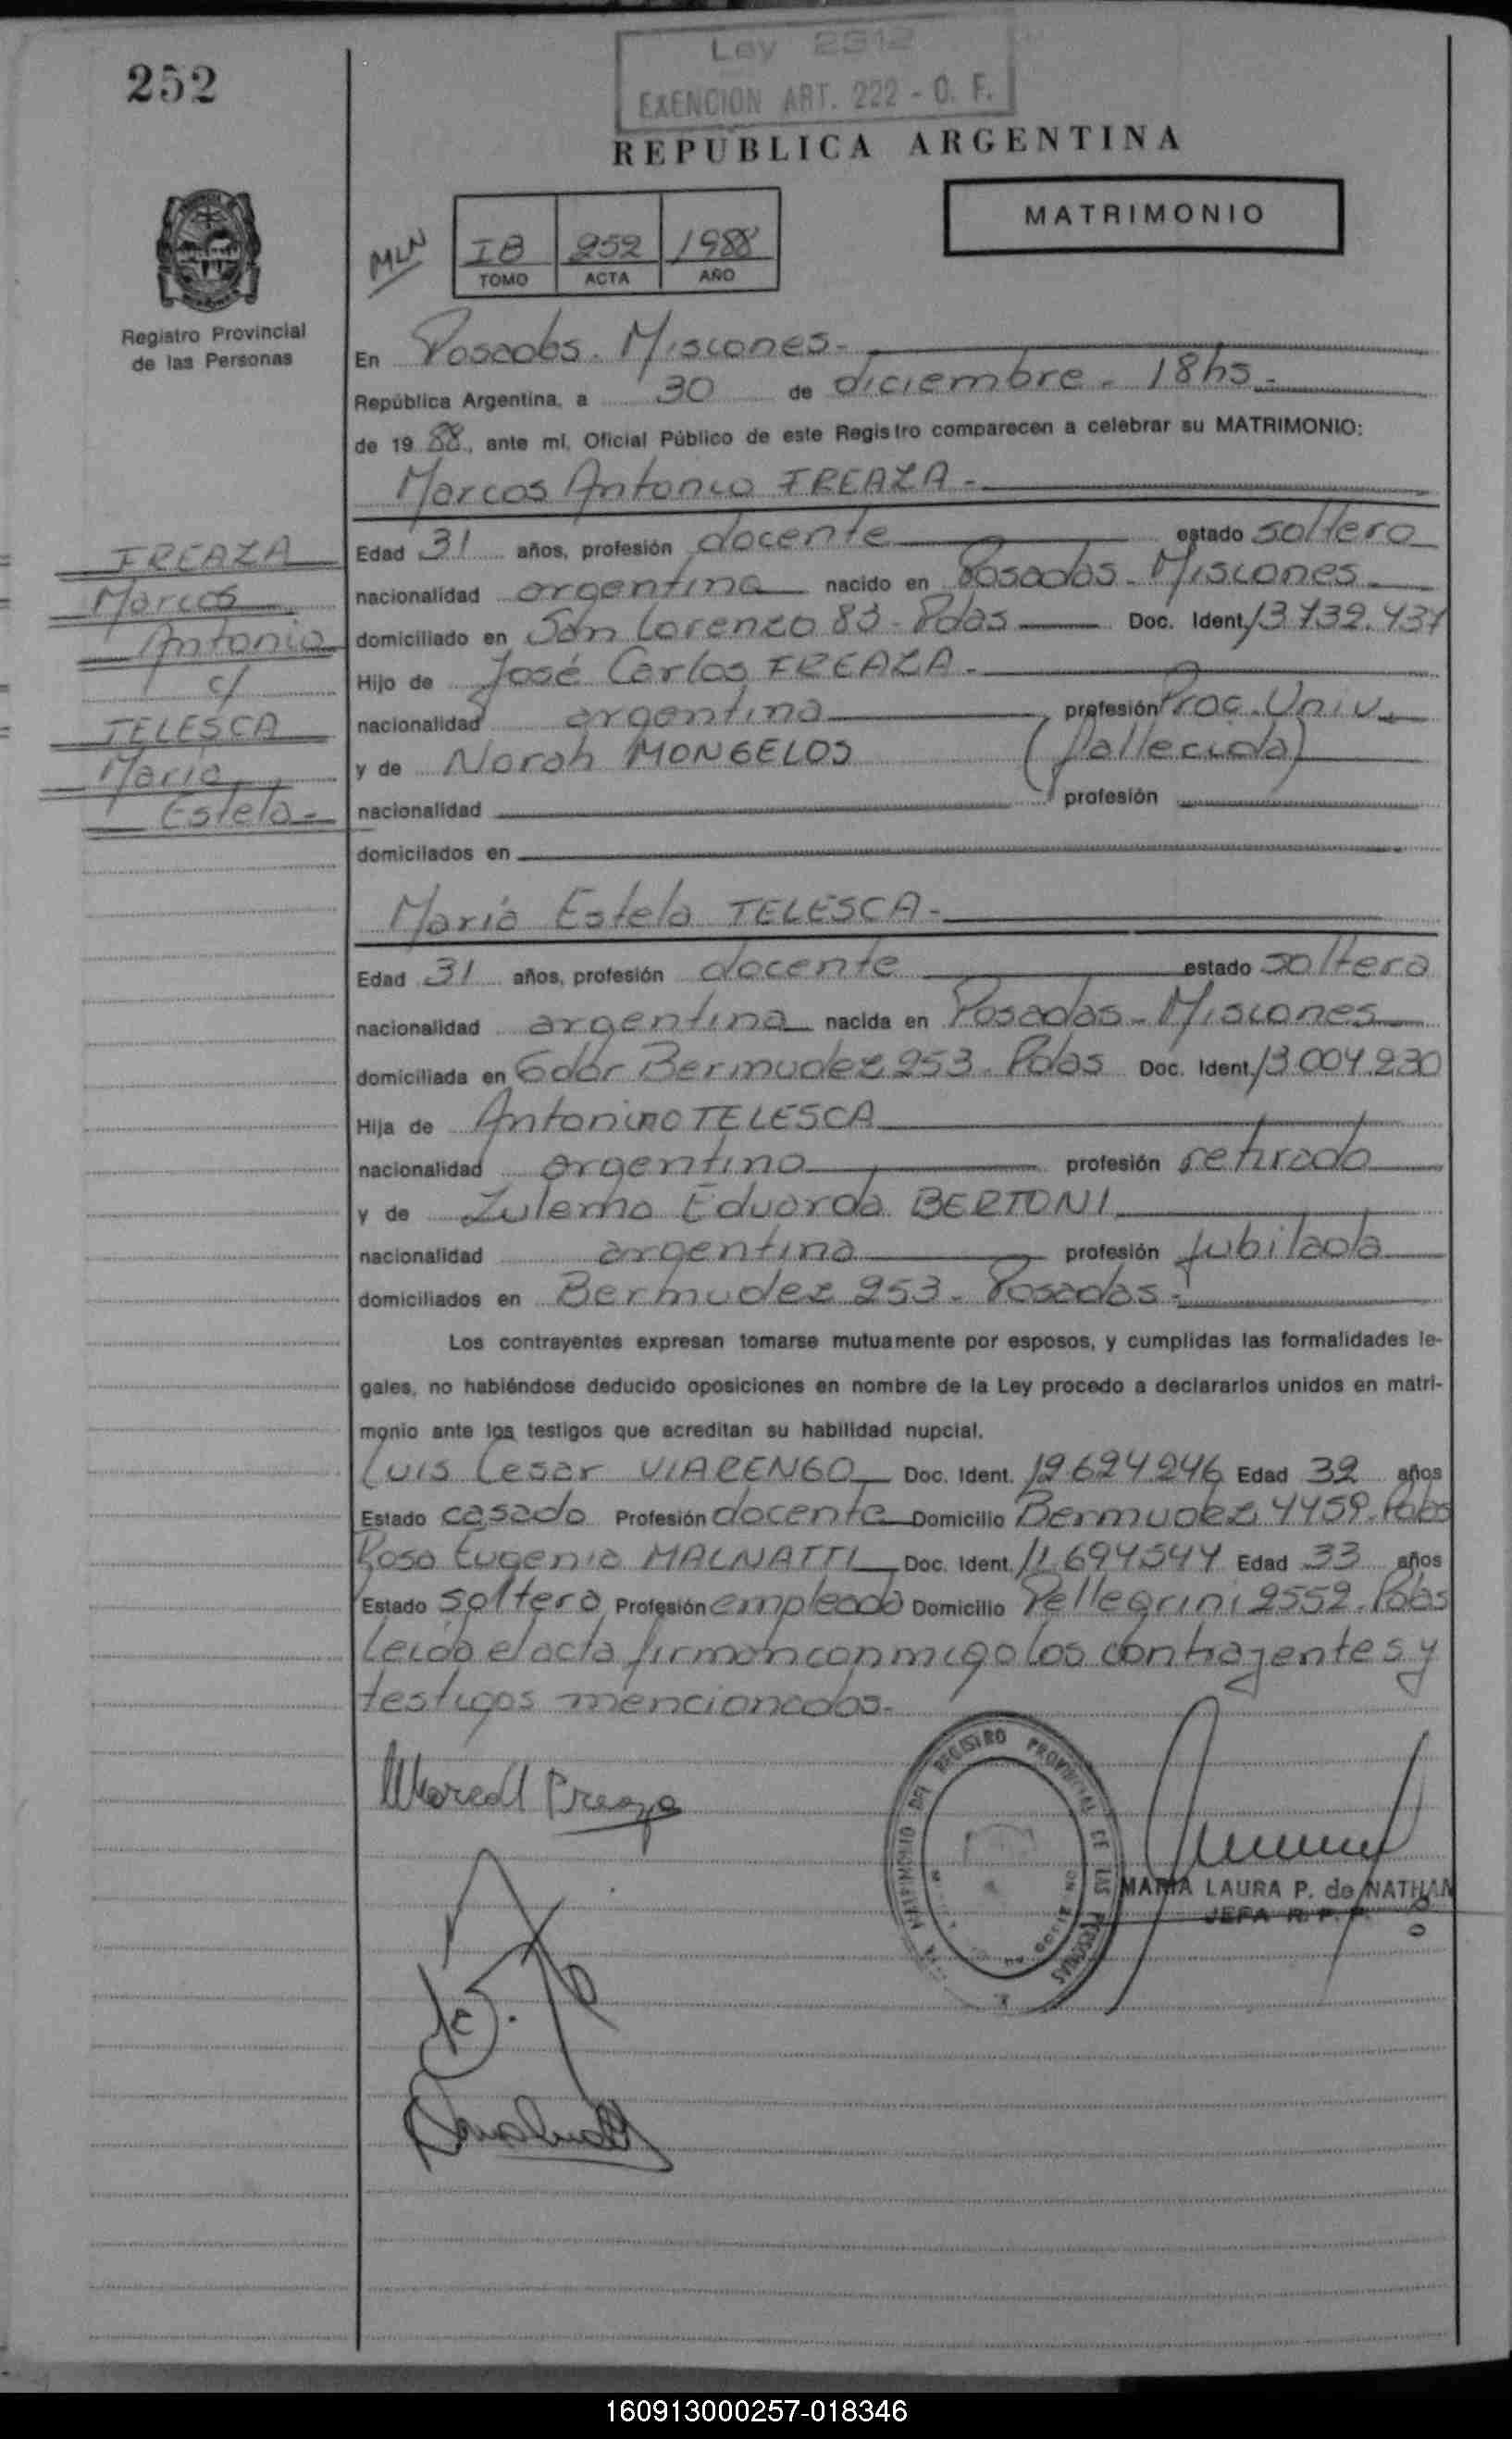 252
Ley 2312
EXENCION ART. 222 - O. F.
REPUBLICA ARGENTINA
MATRIMONIO
MLN
IB 252 1988
TOMO ACTA AÑO
Registro Provincial
de las Personas
En Posadas. Misiones.-
República Argentina, a 30 de diciembre - 18hs.-
de 1988, ante mí, Oficial Público de este Registro comparecen a celebrar su MATRIMONIO:
Marcos Antonio FREAZA.-
FREAZA
Marcos
Antonio
c/
TELESCA
María
Estela.-
Edad 31 años, profesión docente estado soltero
nacionalidad argentina nacido en Posadas - Misiones
domiciliado en San Lorenzo 83 - Pdas Doc. Ident. 13.732.437
Hijo de José Carlos FREAZA.
nacionalidad argentina profesión Proc. Univ.
y de Norah MONGELOS (fallecida)
nacionalidad profesión
domicilados en
María Estela TELESCA.-
Edad 31 años, profesión docente estado soltera
nacionalidad argentina nacida en Posadas - Misiones
domiciliada en Gdor Bermudez 253 - Pdas Doc. Ident. 13.004.230
Hija de Antonino TELESCA
nacionalidad argentina profesión retirado
y de Zulema Eduarda BERTONI
nacionalidad argentina profesión jubilada
domiciliados en Bermudez 253 - Posadas.-
Los contrayentes expresan tomarse mutuamente por esposos, y cumplidas las formalidades le-
gales, no habiéndose deducido oposiciones en nombre de la Ley procedo a declararlos unidos en matri-
monio ante los testigos que acreditan su habilidad nupcial.
Luis Cesar VIARENGO Doc. Ident. 12.624.246 Edad 32 años
Estado casado Profesión docente Domicilio Bermudez 4459. Pdas
Rosa Eugenia MALNATTI Doc. Ident. 11.694.544 Edad 33 años
Estado soltera Profesión empleada Domicilio Pellegrini 2552. Pdas
Leída el acta firman conmigo los contrayentes y
testigos mencionados.-
REGISTRO PROVINCIAL DE LAS PERSONAS
MARIA LAURA P. de NATHAN
JEFA R. P. P.
160913000257-018346